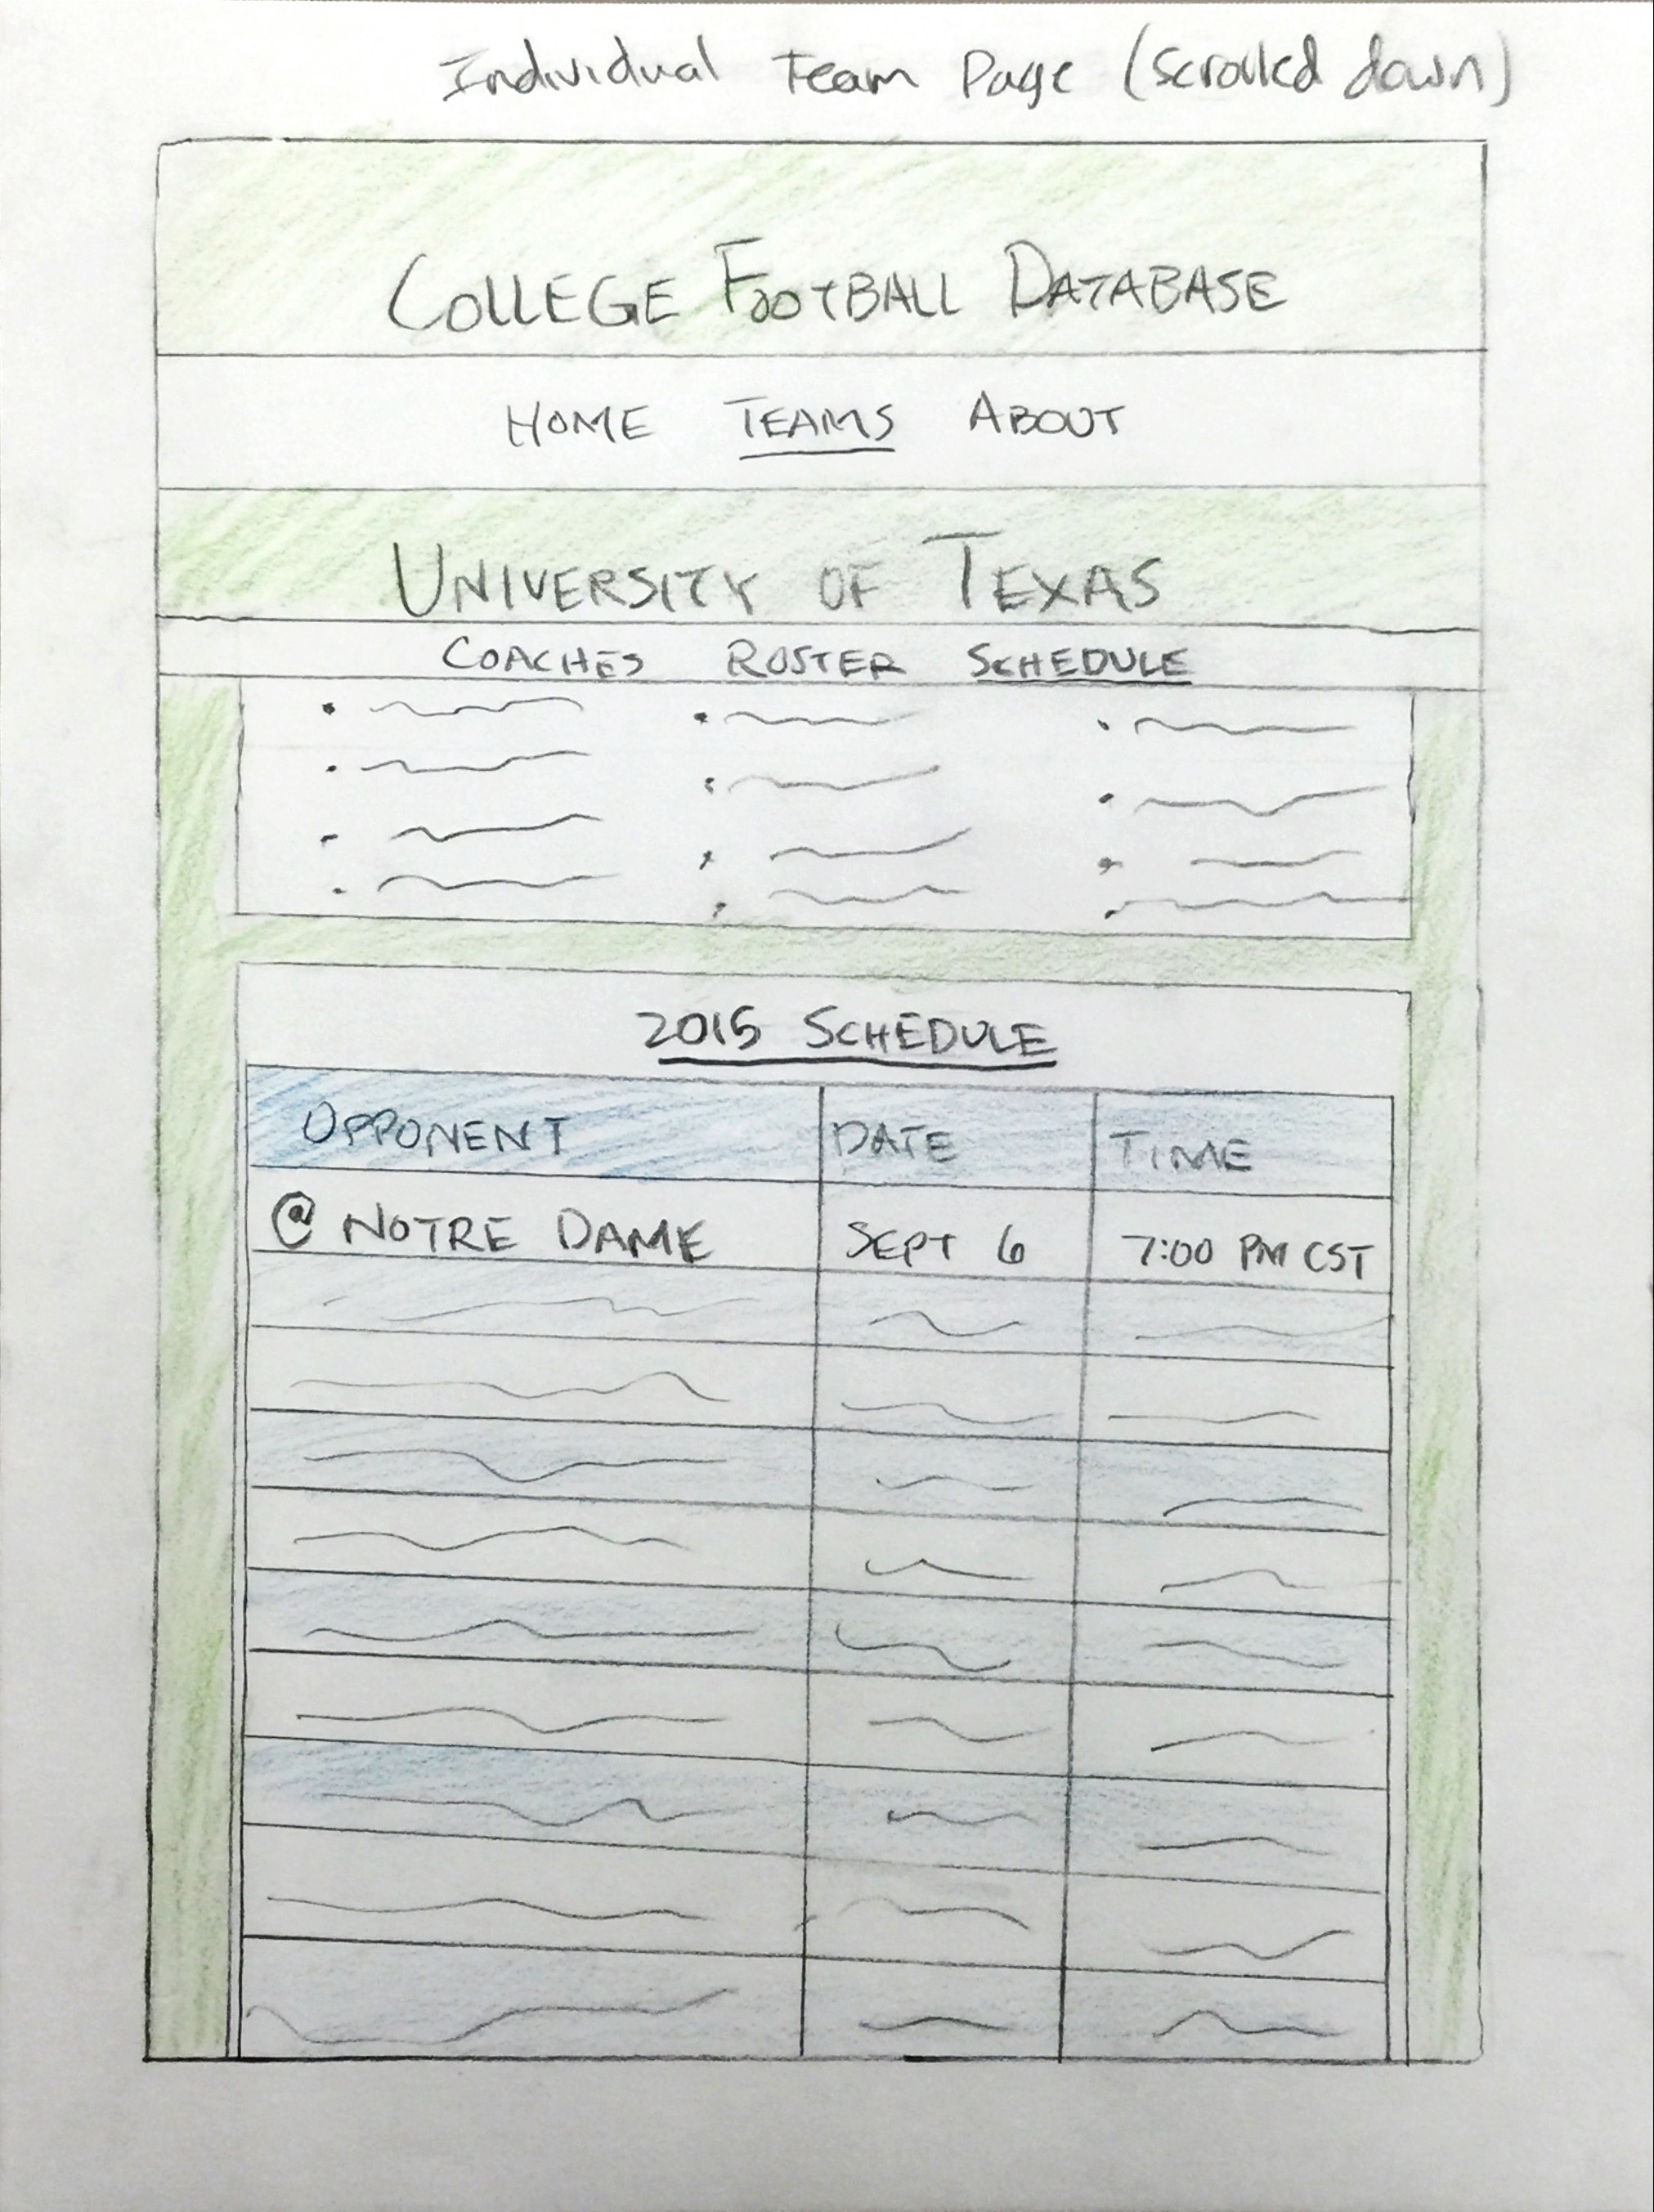 Individual Team Page (scrolled down)
COLLEGE FOOTBALL DATABASE
HOME TEAMS ABOUT
UNIVERSITY OF TEXAS
COACHES ROSTER SCHEDULE
2015 SCHEDULE
OPPONENT DATE TIME
@ NOTRE DAME SEPT 6 7:00 PM CST